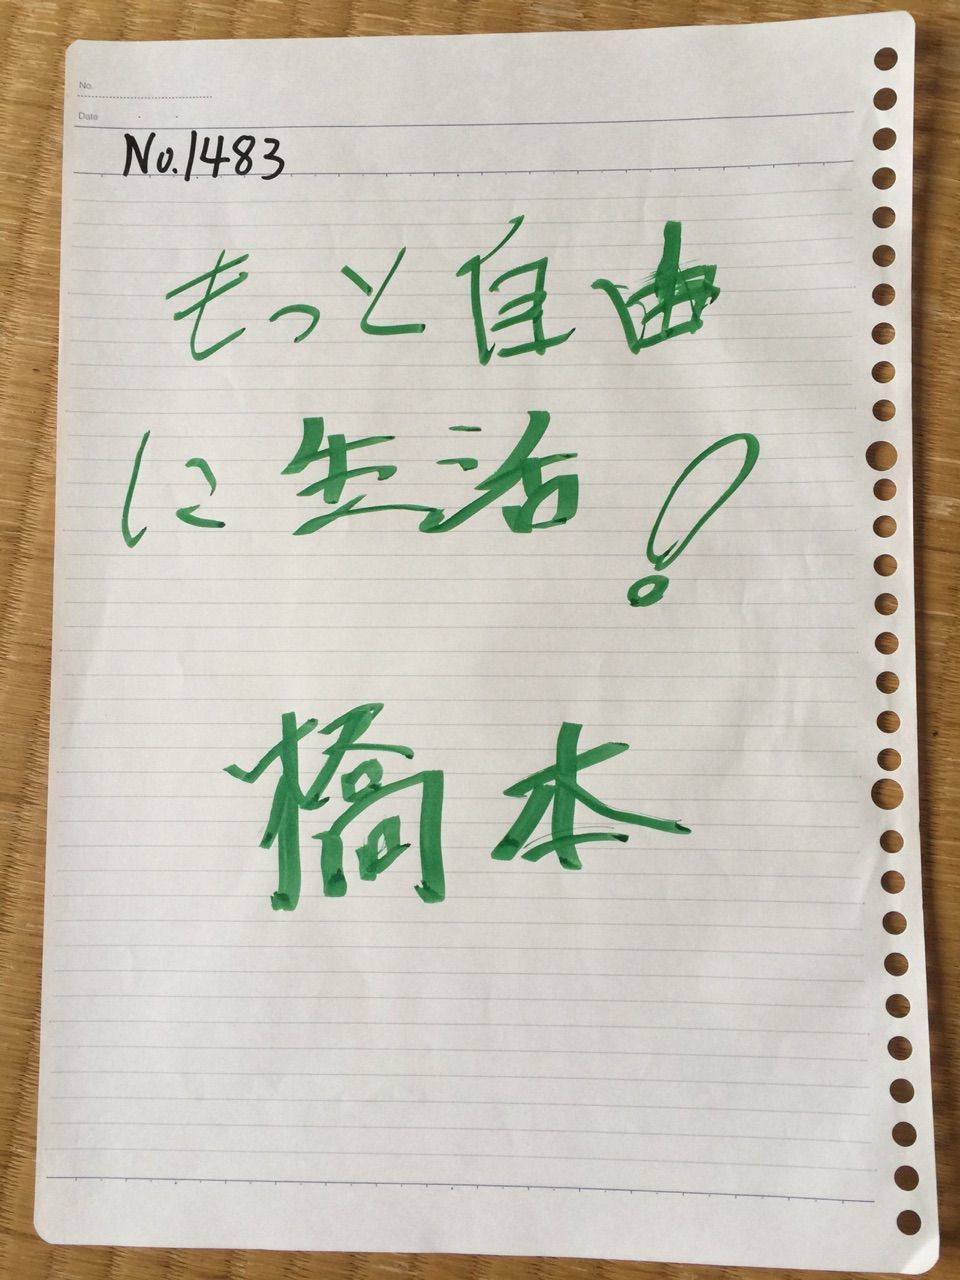 No.
Date
No.1483
もっと自由
に生活!
橋本